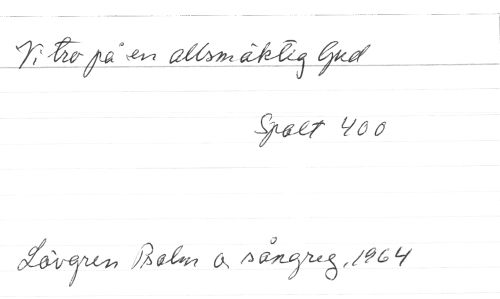 Vi tro på en allsmäktig Gud
Spalt 400
Lövgren Psalm o sångreg. 1964